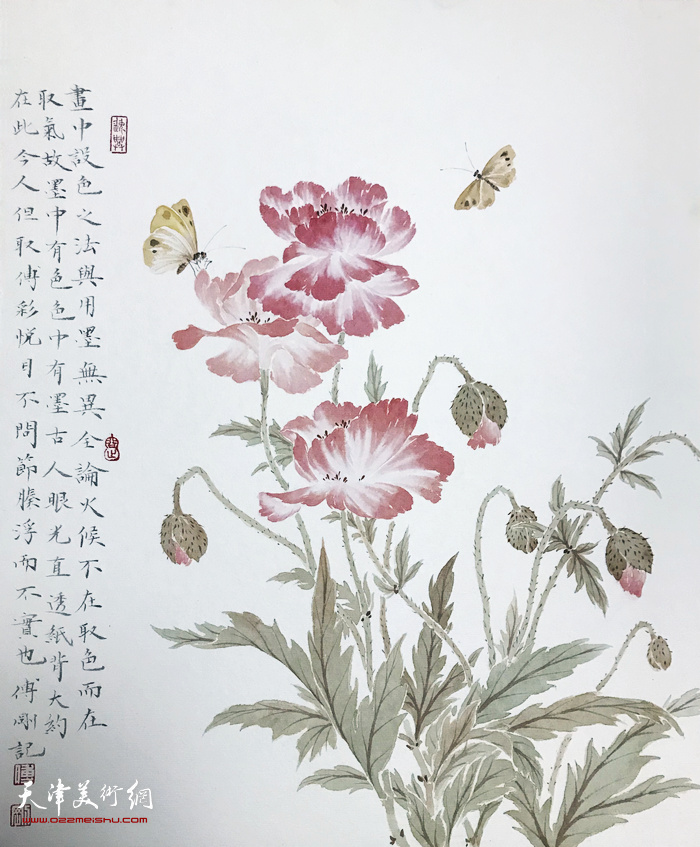 畫中設色之法與用墨無異全論火候不在取色而在
取氣故墨中有色色中有墨古人眼光直透紙背大約
在此今人但取傅彩悅目不問節腠浮而不實也傅剛記
天津美術網
www.022meishu.com